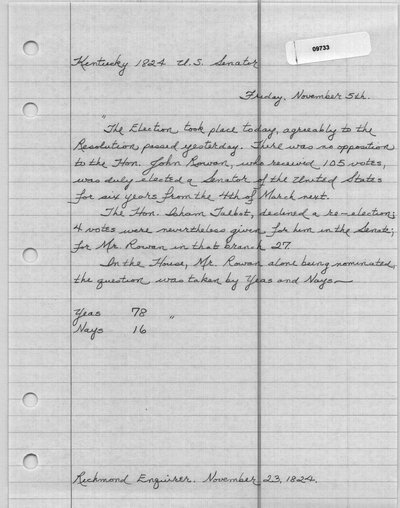 09733
Kentucky 1824 U.S. Senator
Friday, November 5th.
"The Election took place today, agreeably to the
Resolution passed yesterday. There was no opposition
to the Hon. John Rowan, who received 105 votes,
was duly elected a Senator of the United States
for six years from the 4th of March next.
The Hon. Isham Talbot, declined a re-election;
4 votes were nevertheless given for him in the Senate;
for Mr. Rowan in that branch 27.
In the House, Mr. Rowan alone being nominated,
the question was taken by Yeas and Nays—
Yeas 78 "
Nays 16
Richmond Enquirer. November 23, 1824.